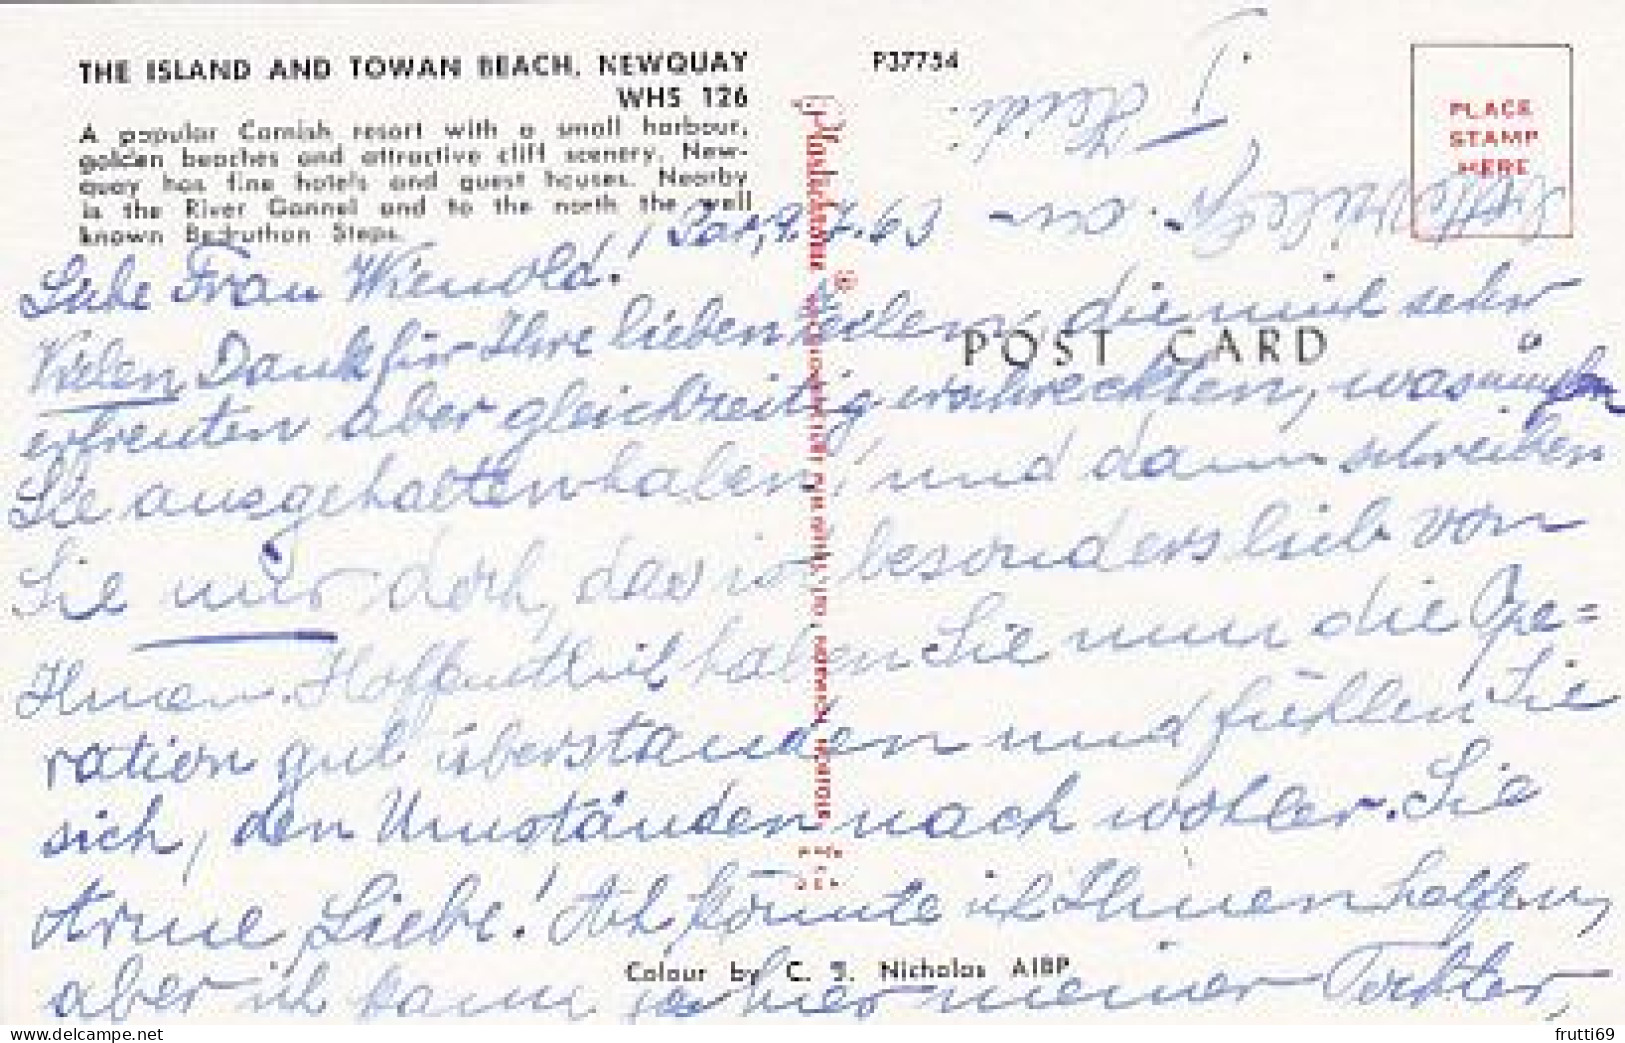 THE ISLAND AND TOWAN BEACH, NEWQUAY
WHS 126
A popular Cornish resort with a small harbour,
golden beaches and attractive cliff scenery. New-
quay has fine hotels and guest houses. Nearby
is the River Gannel and to the north the well
known Bedruthan Steps.
P37754
PLACE
STAMP
HERE
POST CARD
9.7.63
Liebe Frau Wienold!
Vielen Dank für Ihre lieben Zeilen, die mich sehr
erfreuten aber gleichzeitig erschreckten, was müssen
Sie ausgehalten haben, und dann schreiben
Sie mir doch, das ist besonders lieb von
Ihnen. Hoffentlich haben Sie nun die Ope=
ration gut überstanden und fühlen Sie
sich, den Umständen nach wohler. Sie
Arme, Liebe! Ach könnte ich Ihnen helfen,
aber ich kann ja hier meiner Tochter,
Colour by C. S. Nicholas AIBP
frutti69